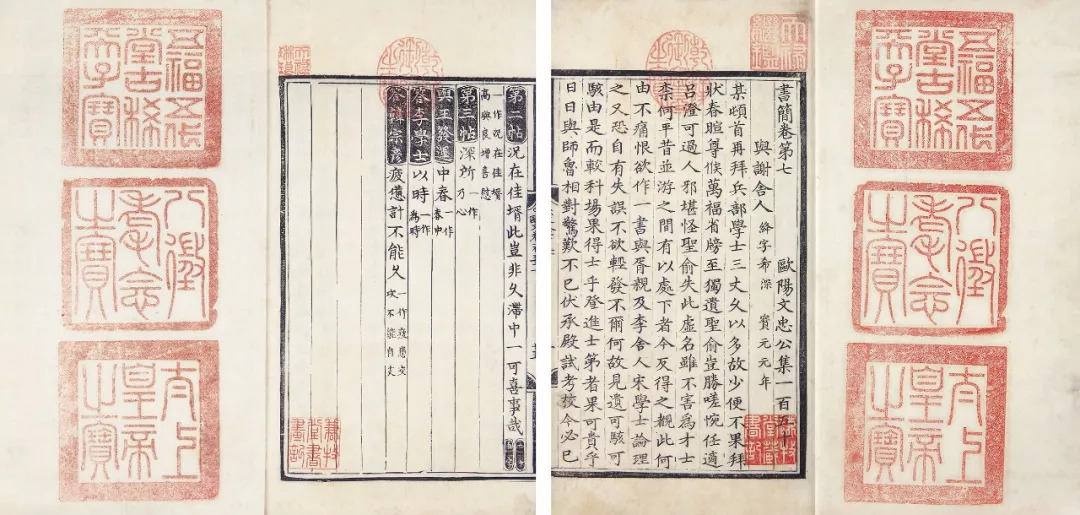 五福五代
堂古稀
天子寶
八徵
耄念
之寶
太上
皇帝
之寶
天祿
繼鑑
書簡卷第七 歐陽文忠公集一百
與謝舍人 絳字希深 寶元元年
某頓首再拜兵部學士三丈久以多故少便不果拜
狀春暄尊候萬福省牓至獨遺聖俞豈勝嗟惋任適
呂澄可過人邪堪怪聖俞失此虛名雖不害為才士
柰何平昔並游之間有以處下者今反得之覩此何
由不痛恨欲作一書與胥親及李舍人宋學士論理
之又恐自有失誤不欲輕發不爾何故見遺可駭可
駭由是而較科場果得士乎登進士第者果可貴乎
日日與師魯相對驚歎不已伏承殿試考校今必已
第二帖 況在佳壻此豈非久滯中一可喜事哉
一作況在佳壻
高興良增喜慰
第三帖 深所 一作乃心
與王發運 中春 一作春中
答李學士 以時 一作為時
宗彥 疲憊計不能久 一作疲憊交攻不能自支
五福五代
堂古稀
天子寶
八徵
耄念
之寶
太上
皇帝
之寶